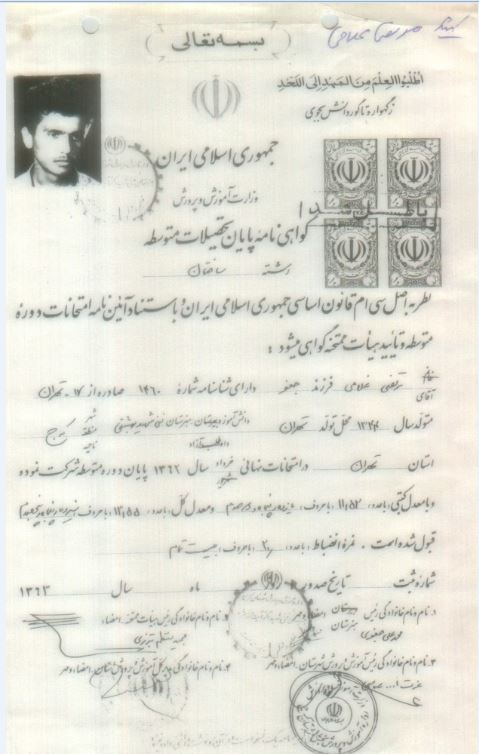 بسمه تعالی
اطلبوا العلم من المهد الی اللحد
زگهواره تا گور دانش بجوی
جمهوری اسلامی ایران
وزارت آموزش و پرورش
باطل شد
گواهی نامه پایان تحصیلات متوسطه
رشته ساختمان
نظر به اصل سی ام قانون اساسی جمهوری اسلامی ایران و با استناد آئین نامه امتحانات دوره
متوسطه و تأیید هیأت ممتحنه گواهی میشود :
خانم
آقای مرتضی غلامی فرزند جعفر دارای شناسنامه شماره ۱۴۶۰ صادره از ۱۷ـ تهران
متولد سال ۱۳۴۴ محل تولد تهران دانش آموز دبیرستان هنرستان فنی شهید بهشتی شهر منطقه ناحیه کرج
استان تهران در امتحانات نهائی خرداد سال ۱۳۶۲ پایان دوره متوسطه شرکت نموده
و با معدل کتبی (با عدد) ۱۱,۵۲ (با حروف) و معدل کل (با عدد) ۱۳,۵۵ (با حروف)
قبول شده است . نمره انضباط (با عدد) ۲۰ (با حروف) بیست تمام
شماره ثبت تاریخ صدور ماه سال ۱۳۶۳
۱ـ نام و نام خانوادگی رئیس دبیرستان هنرستان امضاء و مهر
۲ـ نام و نام خانوادگی رئیس هیأت ممتحنه امضاء
۳ـ نام و نام خانوادگی رئیس آموزش و پرورش شهرستان امضاء و مهر
۴ـ نام و نام خانوادگی مدیر کل آموزش و پرورش استان امضاء و مهر